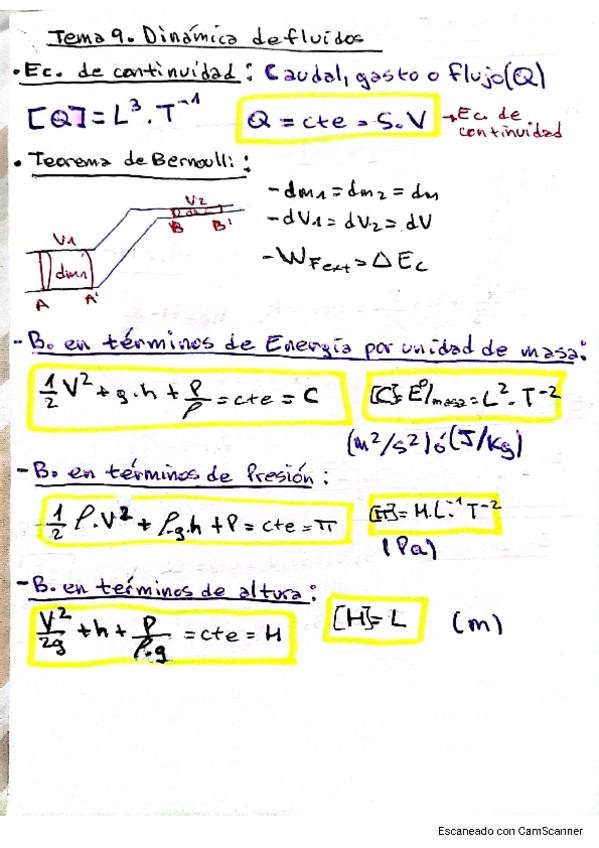 Tema 9. Dinámica de fluidos
• Ec. de continuidad: Caudal, gasto o flujo (Q)
[Q] = L³. T⁻¹
Q = cte = S. V → Ec. de continuidad
• Teorema de Bernoulli:
- dm1 = dm2 = dm
- dV1 = dV2 = dV
- WFext = ΔEc
V1 V2
dm1
A A' B B'
- B. en términos de Energía por unidad de masa:
1/2 V² + g.h + P/ρ = cte = C
[C] = Eº/masa = L². T⁻²
(m²/s²) ó (J/kg)
- B. en términos de Presión:
1/2 ρ.V² + ρ.g.h + P = cte = π
= M.L⁻¹ T⁻²
(Pa)
- B. en términos de altura:
V²/2g + h + P/ρ.g = cte = H
[H] = L (m)
Escaneado con CamScanner